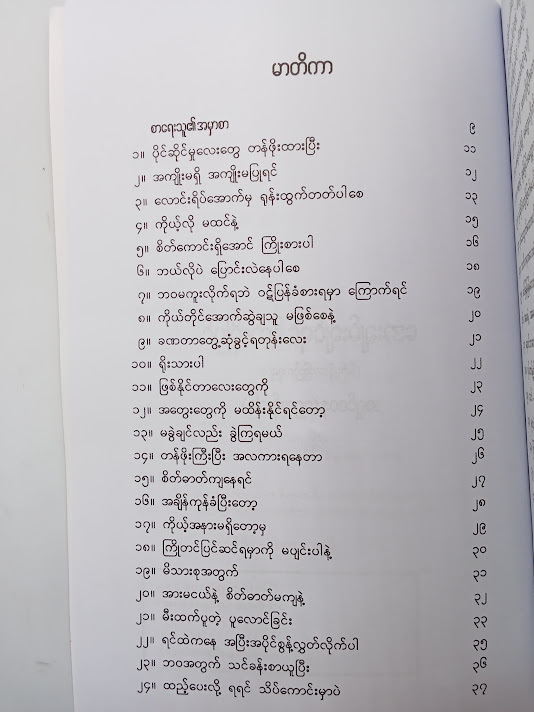 မာတိကာ
စာရေးသူ၏အမှာစာ ၉
၁။ ပိုင်ဆိုင်မှုလေးတွေ တန်ဖိုးထားပြီး ၁၁
၂။ အကျိုးမရှိ အကျိုးမပြုရင် ၁၂
၃။ လောင်းရိပ်အောက်မှ ရုန်းထွက်တတ်ပါစေ ၁၃
၄။ ကိုယ့်လို မထင်နဲ့ ၁၅
၅။ စိတ်ကောင်းရှိအောင် ကြိုးစားပါ ၁၆
၆။ ဘယ်လိုပဲ ပြောင်းလဲနေပါစေ ၁၈
၇။ ဘဝမကူးလိုက်ရဘဲ ဝဋ်ပြန်ခံစားရမှာ ကြောက်ရင် ၁၉
၈။ ကိုယ်တိုင်အောက်ဆွဲချသူ မဖြစ်စေနဲ့ ၂၀
၉။ ခဏတာတွေ့ဆုံခွင့်ရတုန်းလေး ၂၁
၁၀။ ရိုးသားပါ ၂၂
၁၁။ ဖြစ်နိုင်တာလေးတွေကို ၂၃
၁၂။ အတွေးတွေကို မထိန်းနိုင်ရင်တော့ ၂၄
၁၃။ မခွဲချင်လည်း ခွဲကြရမယ် ၂၅
၁၄။ တန်ဖိုးကြီးပြီး အလကားရနေတာ ၂၆
၁၅။ စိတ်ဓာတ်ကျနေရင် ၂၇
၁၆။ အချိန်ကုန်ခံပြီးတော့ ၂၈
၁၇။ ကိုယ့်အနားမရှိတော့မှ ၂၉
၁၈။ ကြိုတင်ပြင်ဆင်ရမှာကို မပျင်းပါနဲ့ ၃၀
၁၉။ မိသားစုအတွက် ၃၁
၂၀။ အားမငယ်နဲ့ စိတ်ဓာတ်မကျနဲ့ ၃၂
၂၁။ မီးထက်ပူတဲ့ ပူလောင်ခြင်း ၃၃
၂၂။ ရင်ထဲကနေ အပြီးအပိုင်စွန့်လွှတ်လိုက်ပါ ၃၅
၂၃။ ဘဝအတွက် သင်ခန်းစာယူပြီး ၃၆
၂၄။ ထည့်ပေးလို့ ရရင် သိပ်ကောင်းမှာပဲ ၃၇